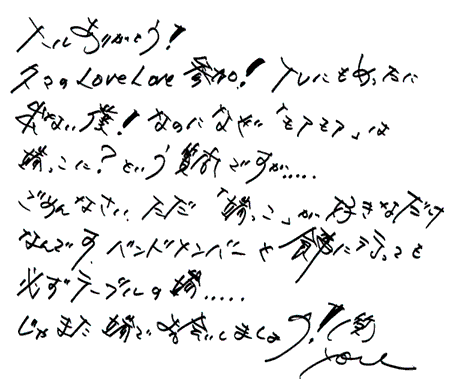 メールありがとう!
久々のLoveLove参加! TVにもめったに
出ない僕! なのになぜ「モアモア」は
端っこに?という質問ですが.....
ごめんなさい ただ「端っこ」が好きなだけ
なんです. バンドメンバーや食事に行っても
必ずテーブルの端.....
じゃまた端でお会いしましょう! (笑)
you